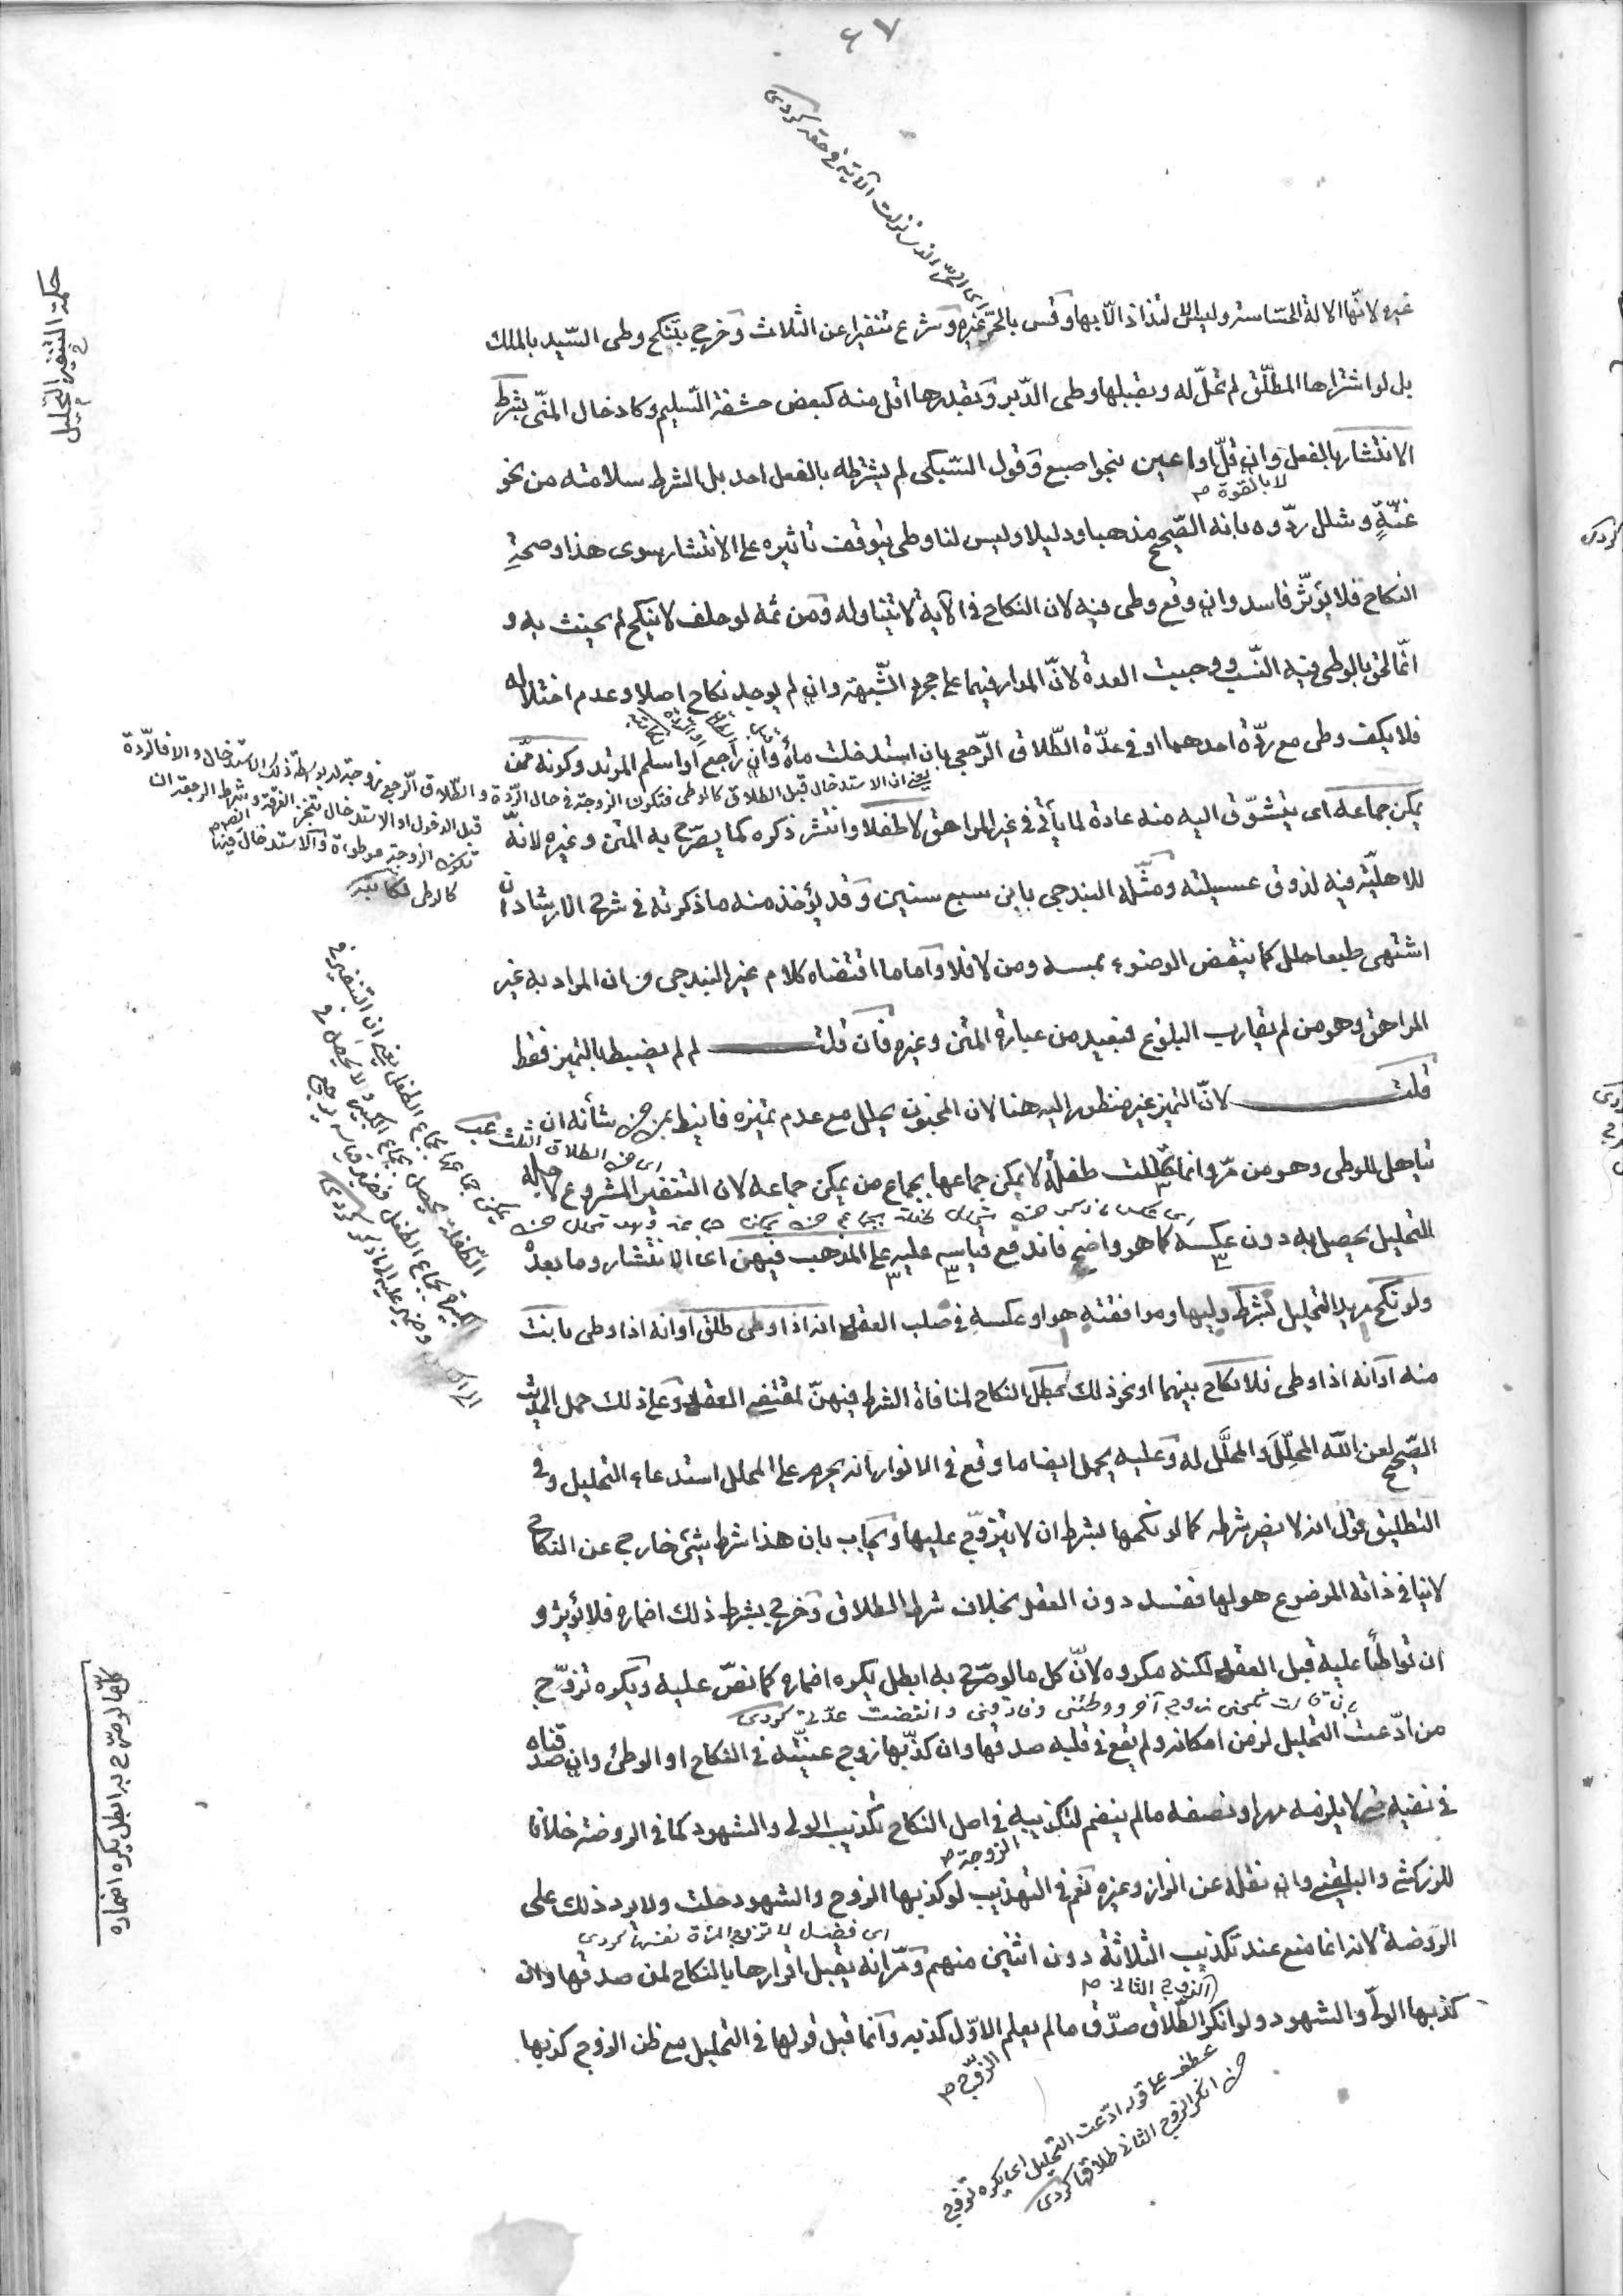 ٦٧
اى الحر الذى نزلت الآية فى حقه كردى
حكمة التنفير فى التحليل
غيره لانها الالة الحساسة وليس الالتذاذ الا بها وقيس بالحر غيره وشرع تنفيرا عن الثلاث وخرج بتنكح وطى السيد بالملك
بل لو اشتراها المطلق لم تحل له وبقبلها وطى الدبر وبقدرها اقل منه كبعض حشفة السليم وكادخال المنى بشرط
الانتشار بالفعل وان قل او اعين بنحو اصبع وقول السبكى لم يشترطه بالفعل احد بل الشرط سلامته من نحو
لا بالقوة م
عنّة وشلل ردوه بانه الصحيح مذهبا ودليلا وليس لنا وطى يتوقف تاثيره على الانتشار سوى هذا وصحة
النكاح فلا يؤثر فاسد وان وقع وطى فيه لان النكاح فى الآية لا يتناوله ومن ثمه لو حلف لا ينكح لم يحنث به و
انما لحق بالوطى فيه النسب ووجبت العدة لانّ المدار فيهما على مجرد الشبهة وان لم يوجد نكاح اصلا وعدم اختلاله
فلا يكف وطى مع ردّة احدهما او فى عدّة الطلاق الرجعى بان استدخلت ماءه وان راجع او اسلم المرتد وكونه ممن
يعنى ان الاستدخال قبل الطلاق كالوطى فتكون الزوجة فى حال الردة والطلاق الرجعى زوجة له بواسطة ذلك الاستدخال والا فالردة
قبل الدخول او الاستدخال تنجز الفرقة وشرط الرجعة ان
تكون الزوجة موطوءة والاستدخال فيها
كالوطى لكاتبه
يمكن جماعه اى يتشوّق اليه منه عادة لما يأتى فى غير المراهق لا طفلا وانتشر ذكره كما يصرّح به المتن وغيره لانه
للاهليّة فيه لذوق عسيلته ومثّله البندنجى بابن سبع سنين وقد يؤخذ منه ما ذكرته فى شرح الارشاد ان
اشتهى طبعا حلل كما ينقض الوضوء بمسه ومن لا فلا واما ما اقتضاه كلام غير البندنجى من ان المراد به غير
المراهق وهو من لم يقارب البلوغ فبعيد من عبارة المتن وغيره فان قلت لم لم يضبط بالتميز فقط
قلت لانّ التميز غير منظور اليه هنا لان المجنون يحلل مع عدم تميزه فانيط بمن من شأنه ان
تتأهل للوطى وهو من مرّ وانما حللت طفلة لا يمكن جماعها بجماع من يمكن جماعه لان التنفير المشروع لاجله
اى من الطلاق الثلاث
التحليل يحصل به دون عكسه كما هو واضح فاندفع قياسه عليه على المذهب فيهن اى الانتشار وما بعده
ولو نكح مريد التحليل بشرط وليها وموافقته هو او عكسه فى صلب العقد انه اذا وطى طلق او انه اذا وطى بانت
منه او انه اذا وطى فلا نكاح بينهما او نحو ذلك بطل النكاح لمنافاة الشرط فيهنّ لمقتضى العقد وعلى ذلك حمل الحديث
الصحيح لعن الله المحلِّلَ والمحلَّل له وعليه يحمل ايضا ما وقع فى الانوار انه يحرم على المحلل استدعاء التحليل وفى
التطليق قول انه لا يضر شرطه كما لو نكحها بشرط ان لا يتزوّج عليها ويجاب بان هذا شرط شئ خارج عن النكاح
لا ينافى ذاته الموضوع هو لها ففسد دون العقد بخلاف شرط الطلاق وخرج بشرط ذلك اضماره فلا يؤثر و
ان تواطئا عليه قبل العقد لكنه مكروه لانّ كل ما لو صرّح به ابطل يكره اضماره كما نصّ عليه ويكره تزوّج
كلّما لو صرّح به ابطل يكره اضماره
بان قالت نكحنى زوج آخر ووطئنى وفارقنى وانقضت عدّتى كردى
من ادّعت التحليل لزمن امكانه ولم يقع فى قلبه صدقها وان كذّبها زوج عينته فى النكاح او الوطئ وان صدقناه
فى نفيه حتى لا يلزمه مهر او نصفه ما لم ينضم لتكذيبه فى اصل النكاح تكذيب الولى والشهود كما فى الروضة خلافا
للزركشى والبلقينى وان نقله عن الزاز وغيره نعم فى التهذيب لو كذبها الزوج والشهود حلت ولا يرد ذلك على
الزوجة م
الروضة لانه انما منع عند تكذيب الثلاثة دون اثنين منهم ومرّ انه يقبل اقرارها بالنكاح لمن صدقها وان
اى فصل لا تزوج المرأة نفسها كردى
كذبها الولىّ والشهود ولو انكر الطلاق صدّق ما لم يعلم الاوّل كذبه وانما قبل قولها فى التحليل مع ظن الزوج كذبها
الزوج الثانى م
الزوج م
عطف على قوله ادّعت التحليل اى يكره تزوج
من انكر الزوج الثانى طلاقها كردى